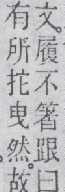 文。履不箸跟曰
有所拕曳然。故